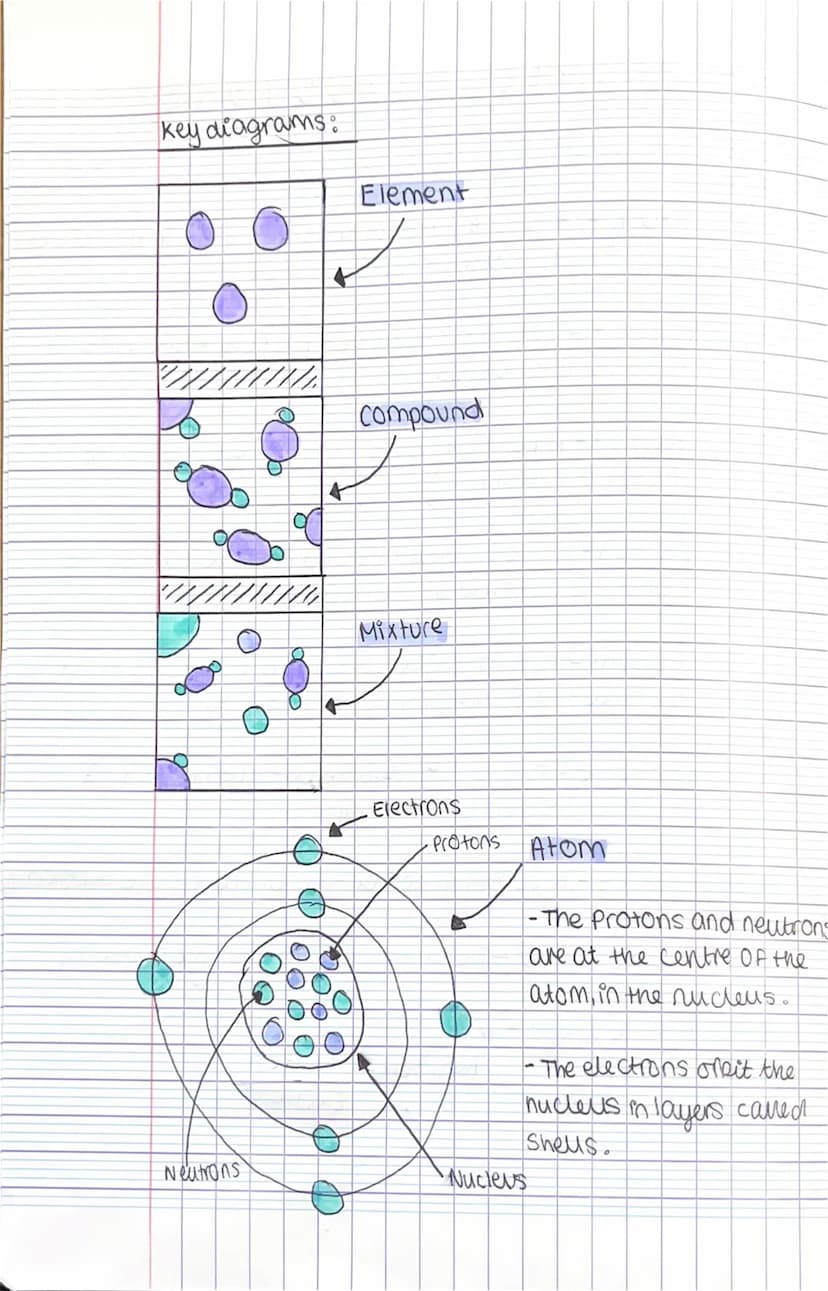 Key diagrams:
Element
Compound
Mixture
Electrons
Protons
Atom
- The protons and neutrons
are at the centre of the
atom, in the nucleus.
- The electrons orbit the
nucleus in layers called
shells.
Neutrons
Nucleus